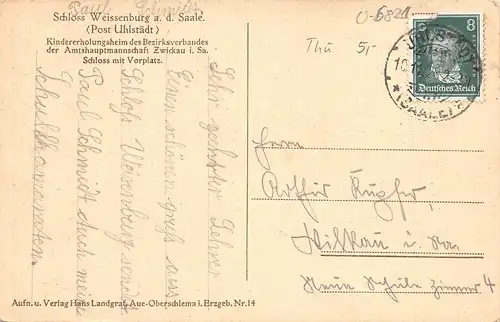 Paul Schmidt
Schloss Weissenburg a. d. Saale.
(Post Uhlstädt)
Kindererholungsheim des Bezirksverbandes
der Amtshauptmannschaft Zwickau i. Sa.
Schloss mit Vorplatz.
Sehr geehrter Lehrer
Einen schönen Gruß aus
Schloß Weisenburg sendet
Paul Schmidt auch meine
Schulkameraten.
Thü 5,-
8
Deutsches Reich
UHLSTÄDT
(SAALE)
Herrn
Arthur
Wilkau i. Sa.
Neue Schule Zimmer 4
Aufn. u. Verlag Hans Landgraf, Aue-Oberschlema i. Erzgeb. Nr. 14